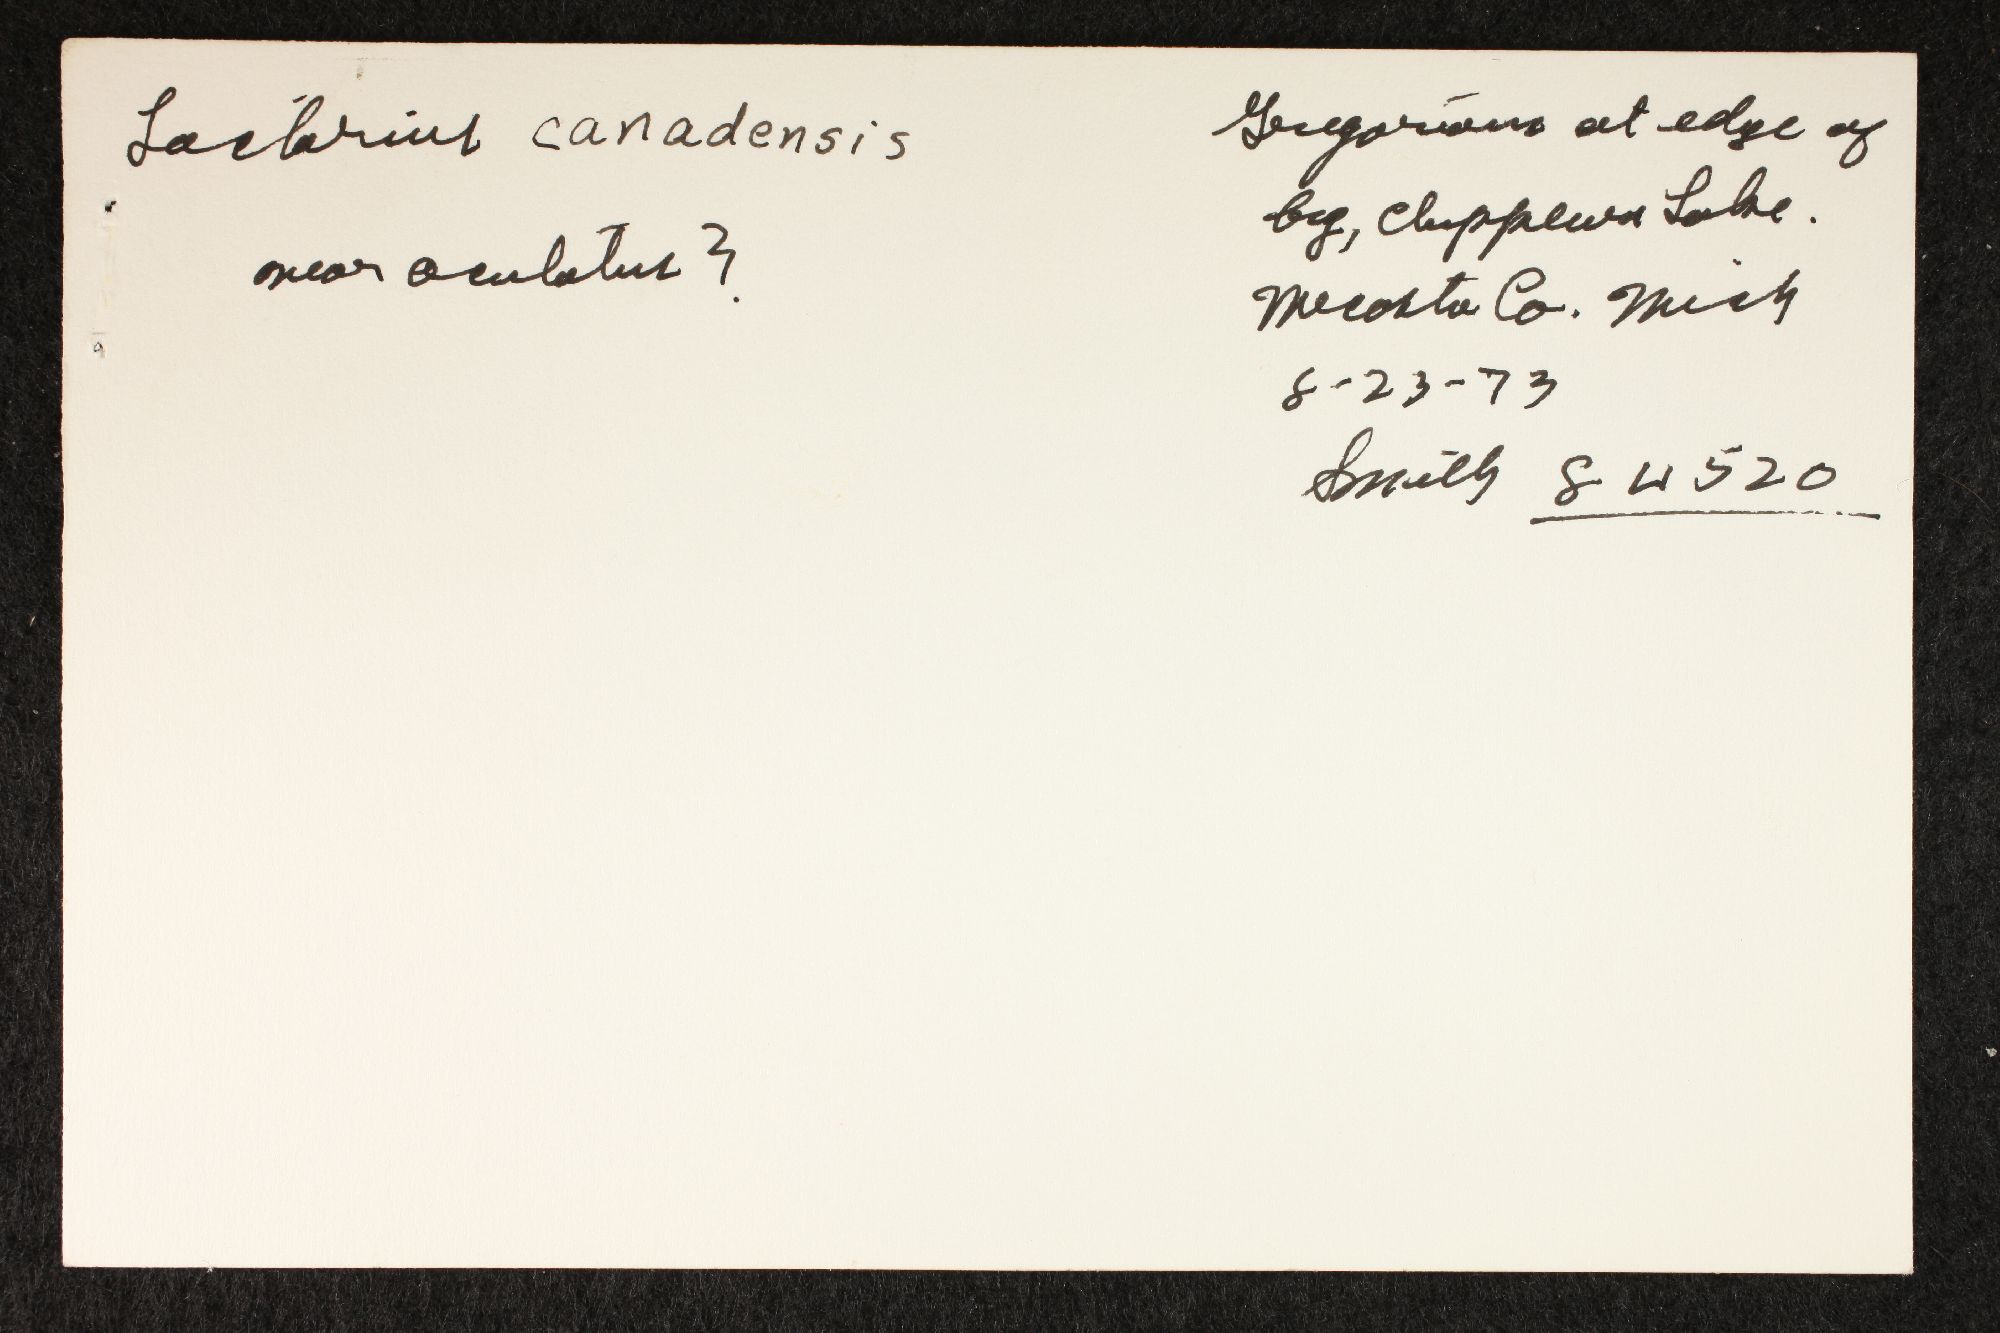 Lactarius canadensis
near oculatus?
Gregarious at edge of
bog, Chippewa Lake.
Mecosta Co. Mich
8-23-73
Smith 84520